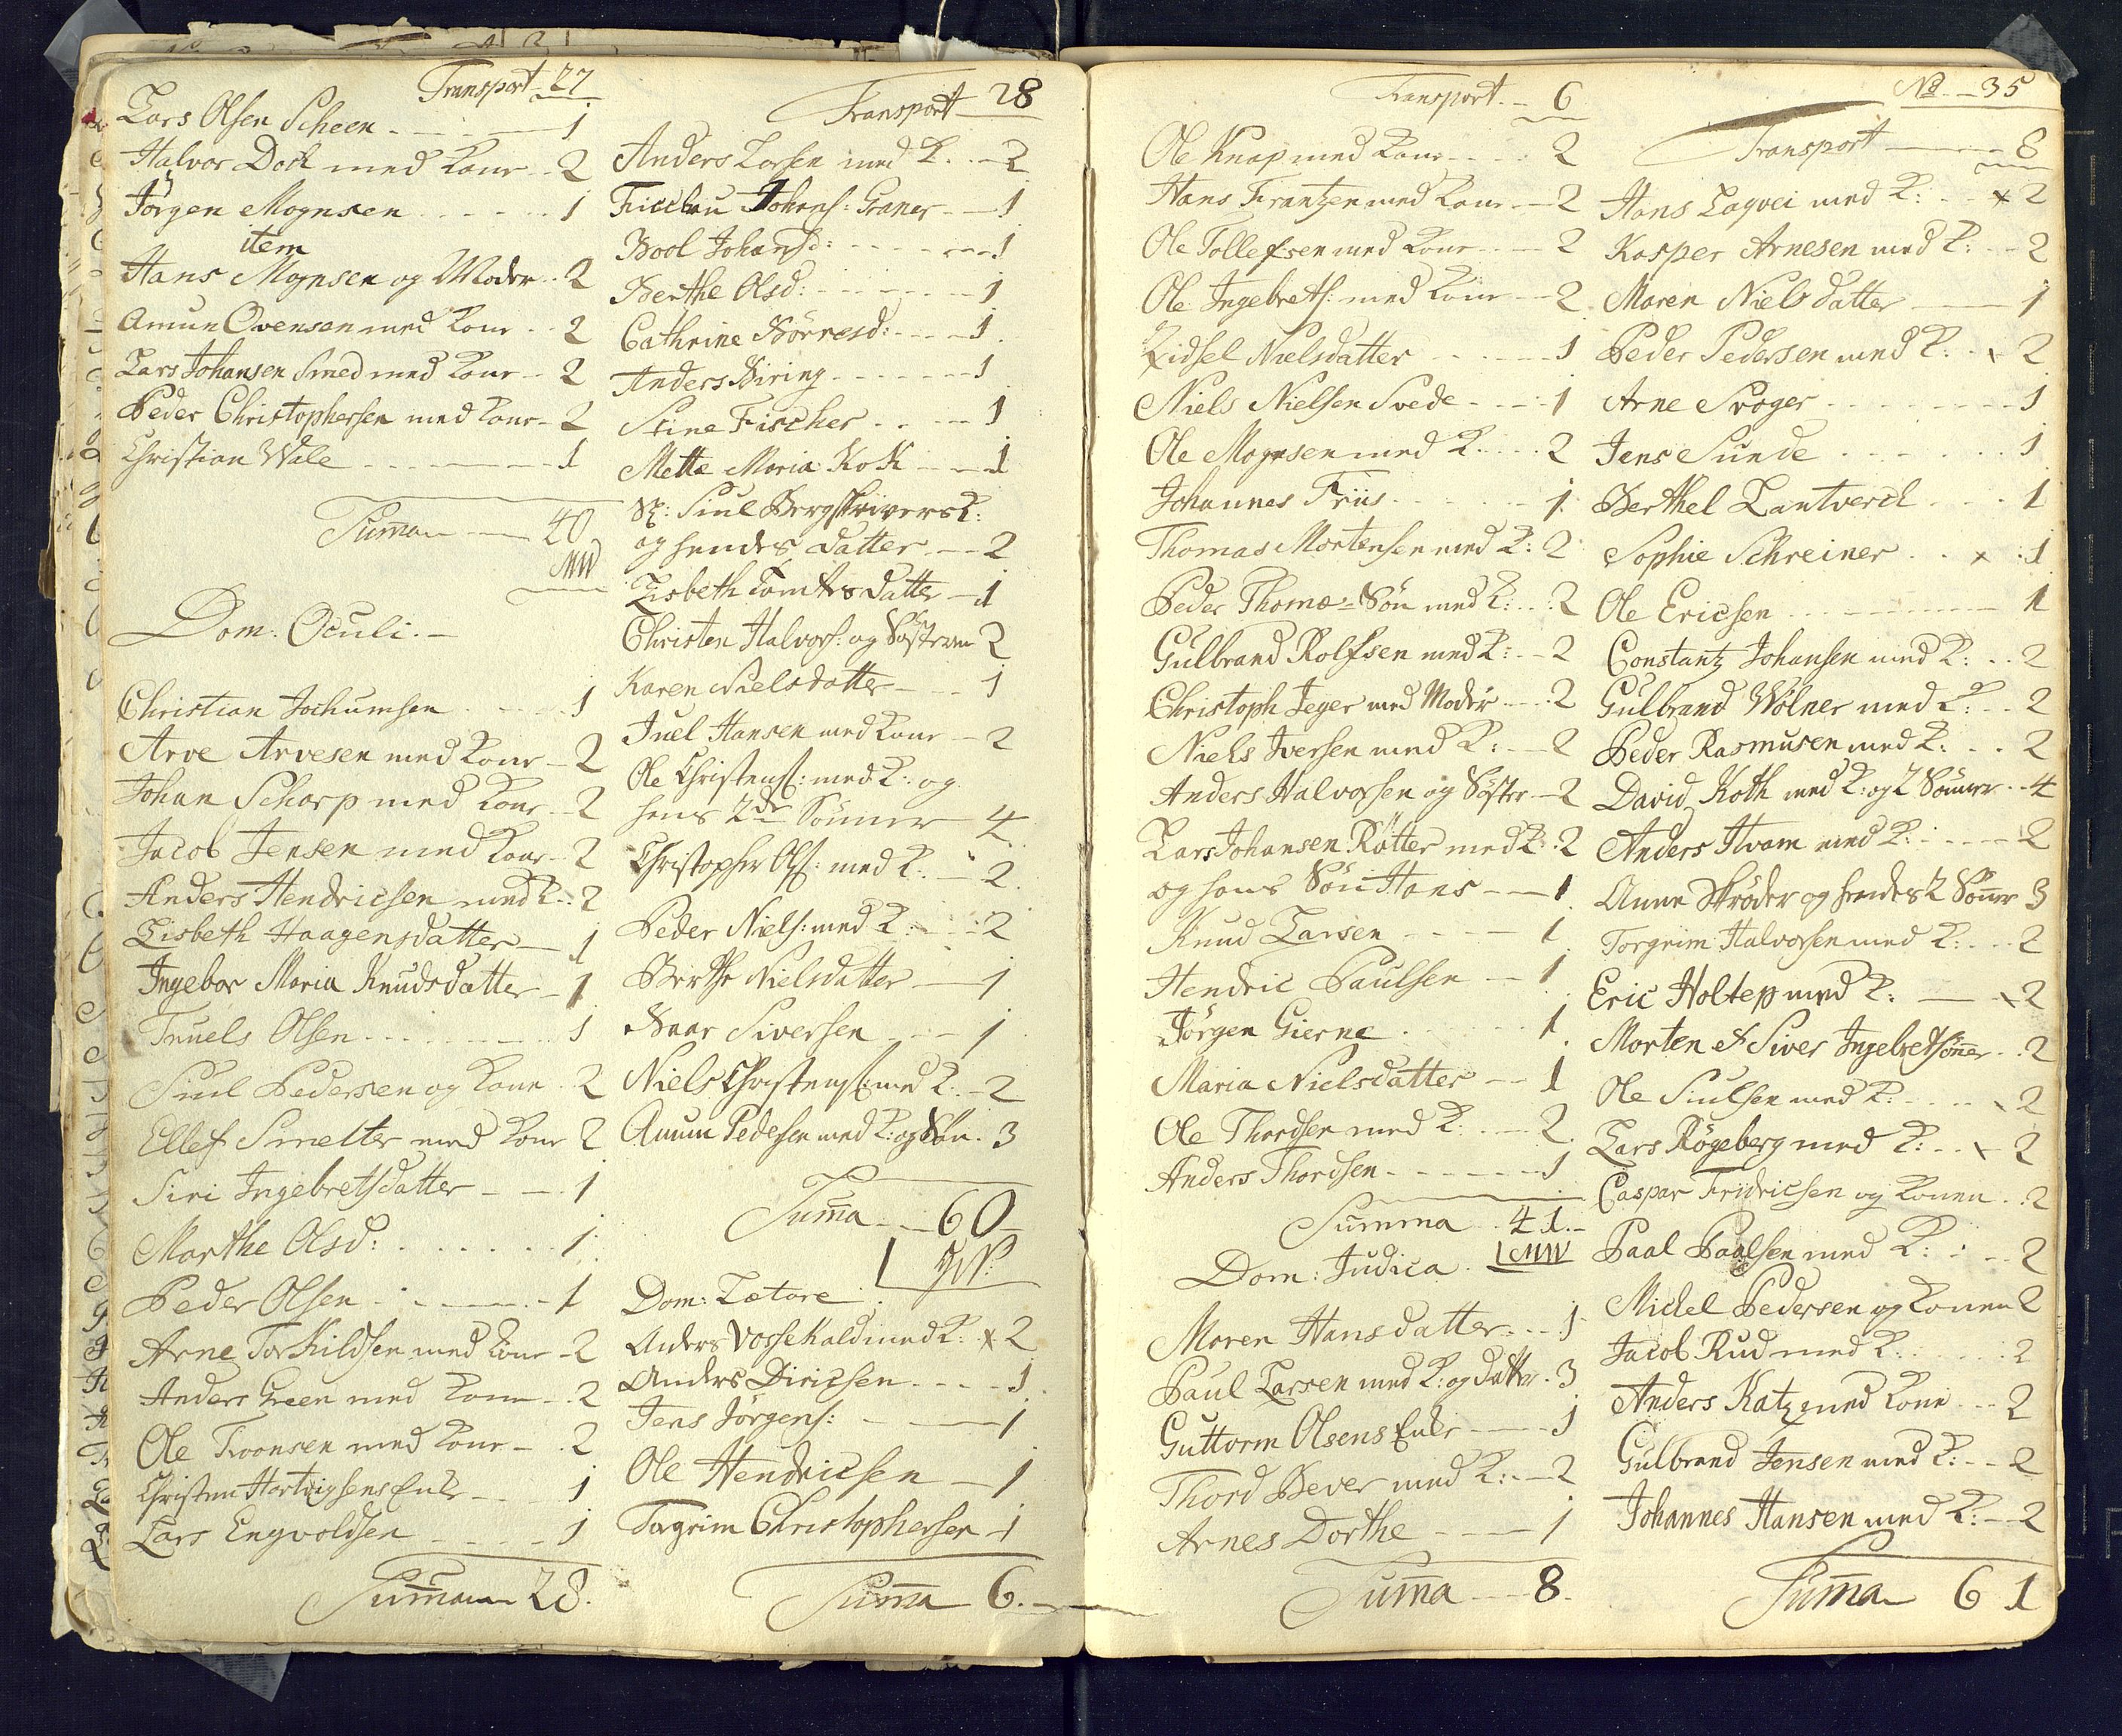 Transport 27
Lars Olsen Scheen 1
Halvor Dock med Kone 2
Jörgen Mognsen 1
item
Hans Mognsen og Moder 2
Amun Ovensen med Kone 2
Lars Johansen Smed med Kone 2
Peder Christophersen med Kone 2
Christian Wale 1
Suma 40
MW
Dom: Oculi.
Christian Jochumsen 1
Arve Arvesen med Kone 2
Johan Scharp med Kone 2
Jacob Jensen med Kone 2
Anders Hendricsen med K: 2
Lisbeth Haagensdatter 1
Ingebor Maria Knudsdatter 1
Truels Olsen 1
Siul Pedersen og Kone 2
Ellef Smelter med Kone 2
Siri Ingebretsdatter 1
Marthe Olsd: 1
Peder Olsen 1
Arne Torkildsen med Kone 2
Anders Green med Kone 2
Ole Tvonsen med Kone 2
Christen Hartvigsens Enke 1
Lars Engvoldsen 1
Suma 28.
Transport 28
Anders Larsen med K. 2
Johans: Graner 1
Bool Johansd: 1
Berthe Olsd: 1
Cathrine Börresd: 1
Anders Biring 1
Stine Fischer 1
Mette Maria Kok 1
Sl: Siul Bergskrivers K:
og hendes datter 2
Lisbeth datter 1
Christen Halvors: og Söstren 2
Karen Nielsdatter 1
Juel Hansen med Kone 2
Ole Christens: med K: og
hans 2de Sönner 4
Christopher Ols: med K. 2
Peder Niels: med K: 2
Berthe Nielsdatter 1
Baar Siversen 1
Niels Christens: med K. 2
Amun Pedersen med K: og Sön 3
Suma 60
Dom: Lætare
Anders Vossekald med K: x 2
Anders Diricsen 1
Jens Jörgens: 1
Ole Hendricsen 1
Torgrim Christophersen 1
Suma 6.
Transport 6
Ole Knap med Kone 2
Hans Frantzen med Kone 2
Ole Tollefsen med Kone 2
Ole Ingebrets: med Kone 2
Lidsel Nielsdatter 1
Niels Nielsen Svede 1
Ole Mognsen med K. 2
Johannes Friis 1
Thomas Mortensen med K: 2
Peder Thomæ-Sön med K: 2
Gulbrand Rolfsen med K: 2
Christoph Jeger med Moder 2
Niels Iversen med K: 2
Anders Halvorsen og Söster 2
Lars Johansen Rötter med K: 2
og hans Sön Hans 1
Knud Larsen 1
Hendric Paulsen 1
Jörgen Gierne 1
Maria Nielsdatter 1
Ole Thordsen med K: 2
Anders Thordsen 1
Summa 41.
Dom: Judica. MW
Maren Hansdatter 1
Paul Larsen med K: og datter 3
Guttorm Olsens Enke 1
Thord Bever med K: 2
Arnes Dorthe 1
Suma 8.
No 35
Transport 8
Hans Laqvei med K: x 2
Kasper Arnesen med K: 2
Maren Nielsdatter 1
Peder Pedersen med K: 2
Arne Svoger 1
Jens Sunde 1
Berthel Lantverck 1
Sophie Schreiner x 1
Ole Ericsen 1
Constantz Johansen med K: 2
Gulbrand Wölner med K: 2
Peder Rasmusen med K: 2
David Koth med K: og 2 Sönner 4
Anders Hvam med K: 2
Anne Schröder og hendes 2 Sönner 3
Torgrim Halvorsen med K: 2
Eric Holtep med K: 2
Morten et Siver Ingebretsönner 2
Ole Siulsen med K: 2
Lars Rögeberg med K: 2
Caspar Fridricsen og Konen 2
Paal Paalsen med K: 2
Mickel Pedersen og Konen 2
Jacob Rud med K: 2
Anders Katz med Kone 2
Gulbrand Jensen med K: 2
Johannes Hansen med K: 2
Suma 61